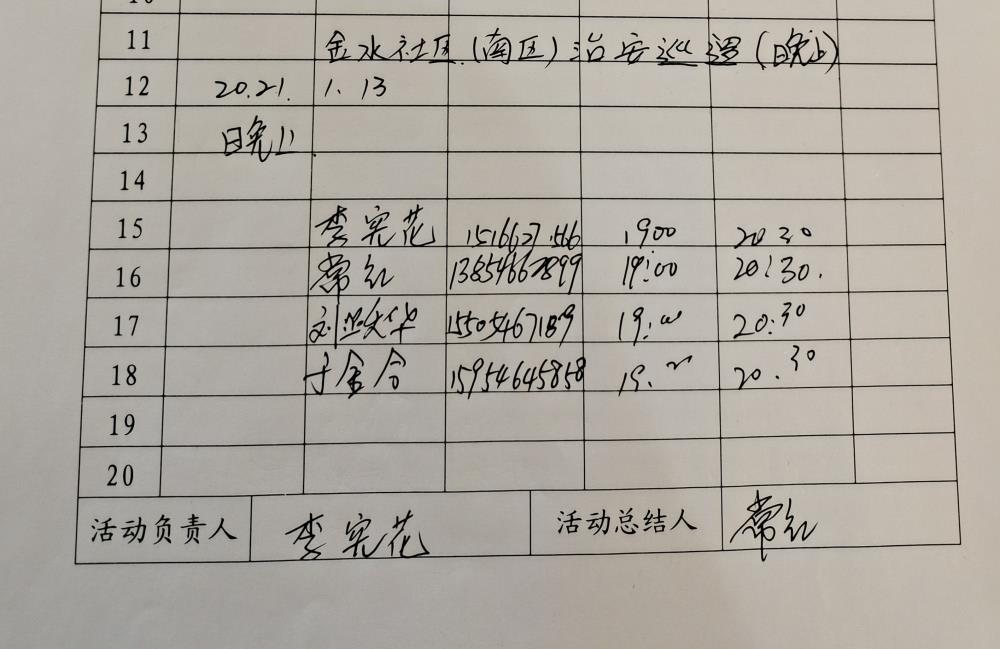 11 金水社区(南区)治安巡逻(晚上)
12 2021. 1. 13
13 晚上
14
15 李宪花 1900 20 30
16 常红 13854662899 19:00 20:30.
17 19:00 20:30
18 于金合 15954645858 19. 20.30
19
20
活动负责人 李宪花 活动总结人 常红